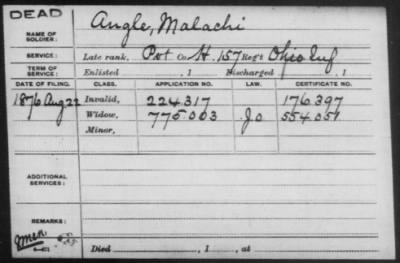 DEAD
NAME OF SOLDIER: Angle, Malachi
SERVICE: Late rank, Pvt Co. H, 157 Reg't Ohio Inf
TERM OF SERVICE: Enlisted , 1 Discharged , 1
DATE OF FILING. CLASS. APPLICATION NO. LAW. CERTIFICATE NO.
1876 Aug 22 Invalid, 224.317 176.397
Widow, 775.003 Jo 554.051
Minor,
ADDITIONAL SERVICES:
REMARKS:
Died , 1 , at